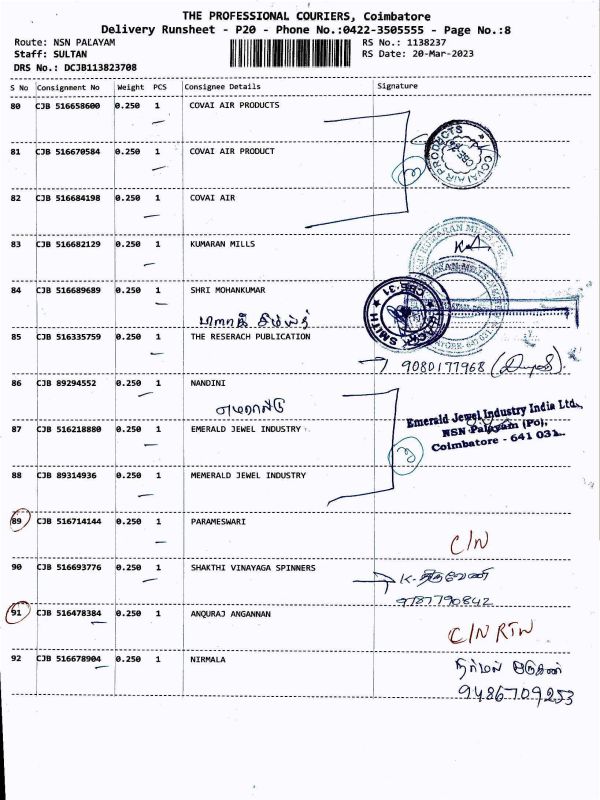 THE PROFESSIONAL COURIERS, Coimbatore
Delivery Runsheet - P20 - Phone No.:0422-3505555 - Page No.:8
Route: NSN PALAYAM RS No.: 1138237
Staff: SULTAN RS Date: 20-Mar-2023
DRS No.: DCJB113823708
S No Consignment No Weight PCS Consignee Details Signature
80 CJB 516658600 0.250 1 COVAI AIR PRODUCTS
COVAI AIR PRODUCTS
81 CJB 516670584 0.250 1 COVAI AIR PRODUCT
3
82 CJB 516684198 0.250 1 COVAI AIR
83 CJB 516682129 0.250 1 KUMARAN MILLS
84 CJB 516689689 0.250 1 SHRI MOHANKUMAR
CBE-31
SMITH
85 CJB 516335759 0.250 1 THE RESERACH PUBLICATION
9080177968
86 CJB 89294552 0.250 1 NANDINI
எமரால்டு
87 CJB 516218880 0.250 1 EMERALD JEWEL INDUSTRY
Emerald Jewel Industry India Ltd.,
NSN Palayam (Po),
Coimbatore - 641 031.
3
88 CJB 89314936 0.250 1 MEMERALD JEWEL INDUSTRY
89 CJB 516714144 0.250 1 PARAMESWARI
C/N
90 CJB 516693776 0.250 1 SHAKTHI VINAYAGA SPINNERS
9787790842
91 CJB 516478384 0.250 1 ANQURAJ ANGANNAN
C/N RTN
92 CJB 516678904 0.250 1 NIRMALA
9486709253